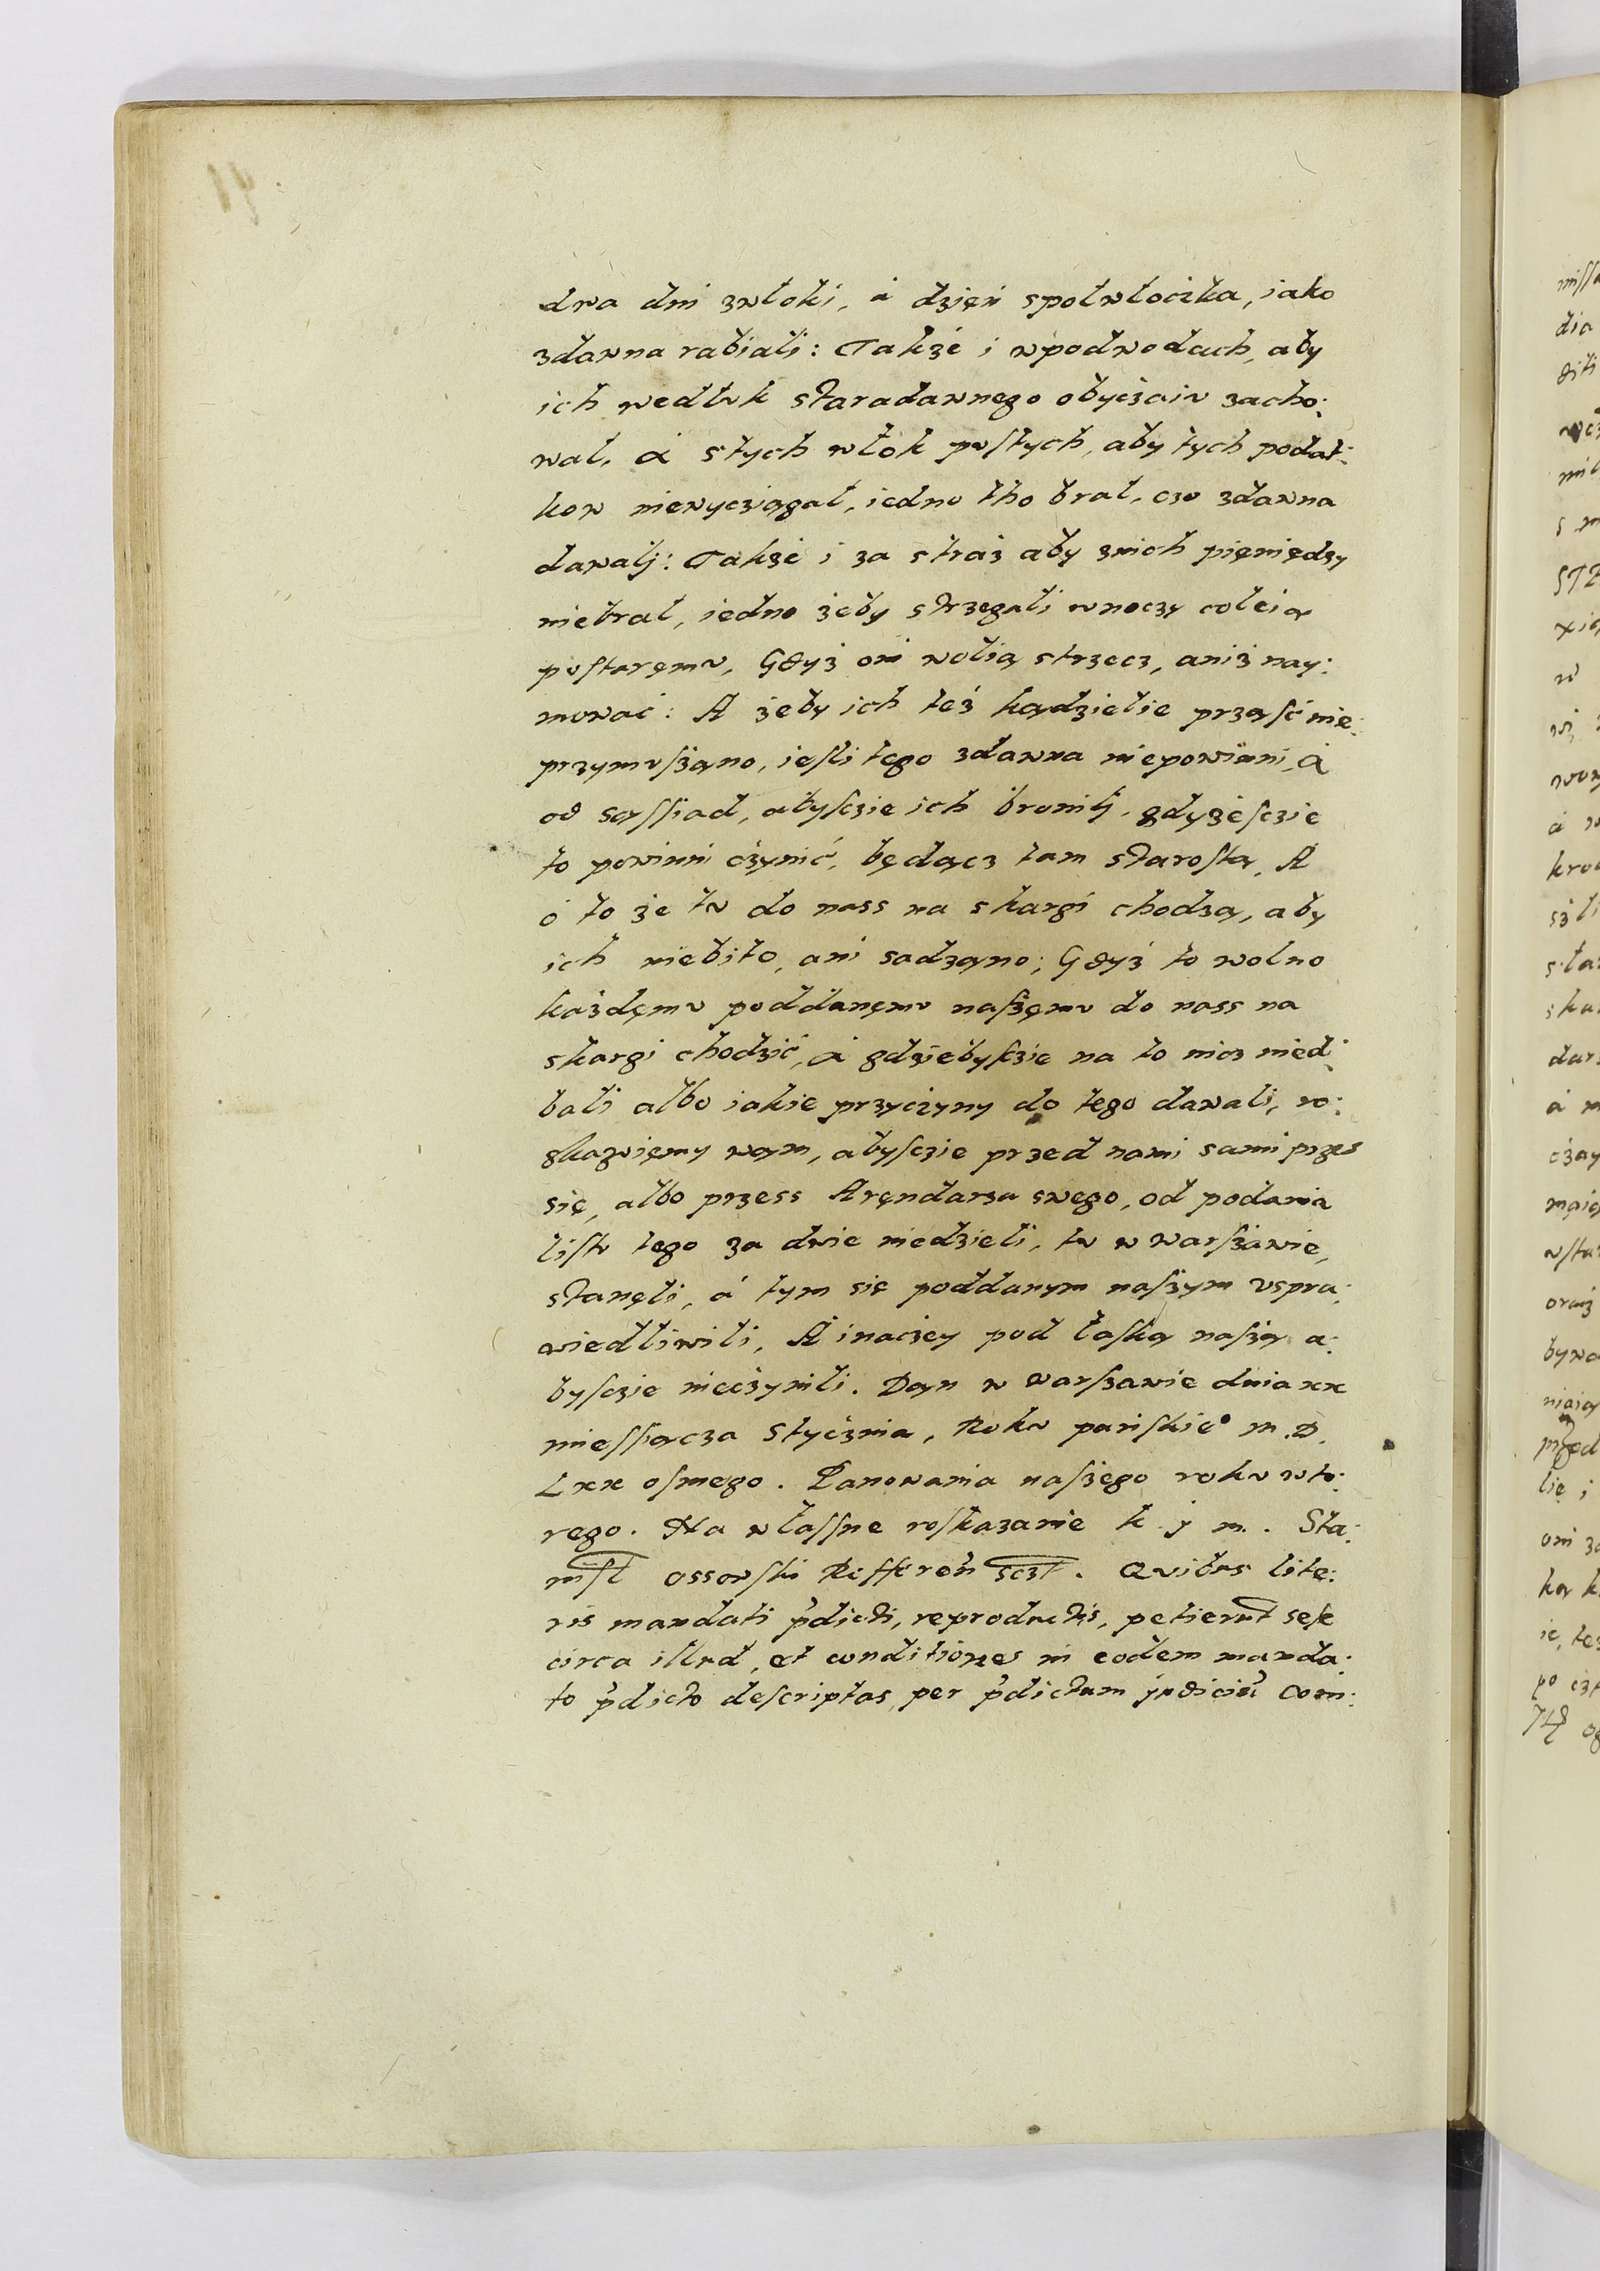 dwa dni zwłoki, á dzień społwłoczka, iako
zdawna rabiali: Takżé i wpodwodach, aby
ich wedłuk staradawnego obyczaiu zacho:
wał, á stych włok pustych, aby tych podat:
kow niewycziągał, iedno tho brał, czo zdawna
dawalÿ: Także i za straż aby znich pięniędzy
niebrał, iedno żeby strzegali wnoczy coleią
postaręmu, Gdyż oni wolią strzecz, aniż nay:
mować: A żeby ich też kądzielie prząść nie:
przymuszano, iesli tego zdawna niepowinni, á
od sąssiad, abysczie ich bronilÿ, gdyżesczie
to powinni czynić, będącz tam starostą, A
ó to że tu do nass na skargi chodzą, aby
ich niebito, ani sadzano; Gdyż to wolno
każdęmu poddanęmu naszęmu do nass na
skargi chodzić, á gdziebysczie na to nicz nied:
bali albo iakie przyczyny do tego dawali, ro:
skazuięmy wąm, abysczie przed nami sami przes
się, albo przess Aręndarza swego, od podania
listu tego za dwie niedzieli, tu w warszawie,
stanęli, á tym się poddanym naszym uspra:
wiedliwili, A inaczey pod łaską naszą a:
bysczie nieczynili. Dąn w warszawie dnia xx
miessiącza Stycznia, Roku pańskie° M.D.
Lxx osmego. Panowania naszego roku wto:
rego. Na własne roskazanie k j m. Sta:
nisl ossowski Refferen sczt. Quibus lite:
ris mandati pdicti, reproductis, petierunt sese
circa illud, et conditiones in eodem manda:
to pdicto descriptas, per pdictum judiciu com: